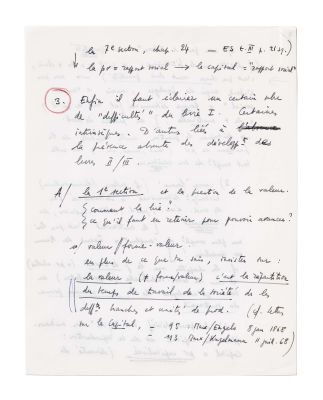 la 7e section, chap. 24 — ES t. III p. 21 sq.)
↓ la pv = rapport social → le capital = "rapport social"
3. Enfin il faut éclairer un certain nbre
de "difficultés" du livre I. Certaines
intrinsèques. D'autres liées à
la présence absente des développts des
livres II / III.
A/ la 1e section et la question de la valeur.
{ comment la lire ?
{ ce qu'il faut en retenir pour pouvoir avancer ?
a/ valeur / forme-valeur.
en plus de ce que tu sais, insister sur :
la valeur (≠ forme/valeur) c'est la répartition
du temps de travail de la société de les
diffts branches et unités de prod. (cf. lettres
sur le Capital, — 95 Marx/Engels 8 jan 1868
— 113 Marx/Kugelmann 11 juil. 68)